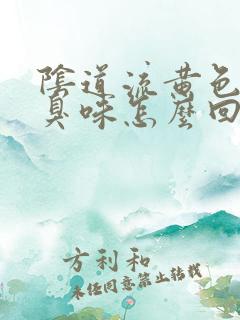 陰道流黄色
臭味怎麽回
方利和
未经同意禁止转载